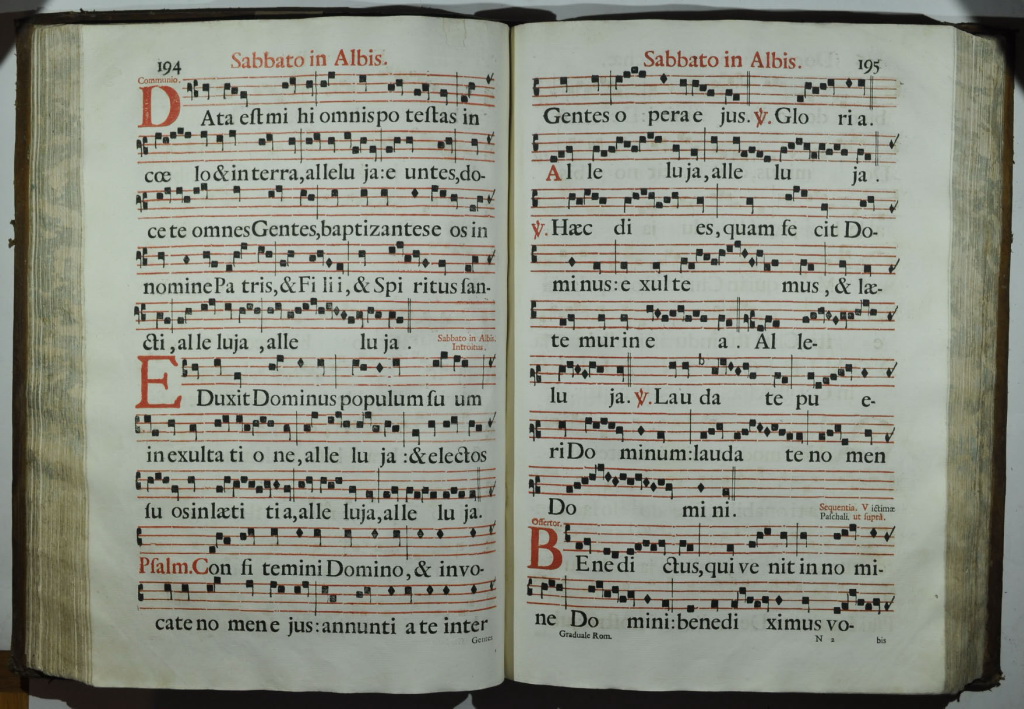 194
Sabbato in Albis.
Communio.
DAta eſt mi hi omnis po teſtas in
cœ lo & in terra, allelu ja: e untes, do-
ce te omnes Gentes, baptizantes e os in
nomine Pa tris, & Fi lii, & Spi ritus ſan-
cti, al le luja , alle lu ja .
Sabbato in Albis.
Introitus.
EDuxit Dominus populum ſu um
in exulta ti o ne, al le lu ja : & electos
ſu os in læti ti a, alle luja, alle lu ja.
Pſalm. Con fi temini Domino, & invo-
cate no men e jus: annunti a te inter
Gentes
Sabbato in Albis.
195
Gentes o pera e jus. ℣. Glo ri a.
Al le lu ja, alle lu ja .
℣. Hæc di es, quam fe cit Do-
mi nus: e xul te mus , & læ-
te mur in e a . Al le-
lu ja. ℣. Lau da te pu e-
ri Do minum: lauda te no men
Do mi ni.
Sequentia. Victimæ
Paſchali. ut ſuprà.
Offertor.
BEne di ctus, qui ve nit in no mi-
ne Do mini: benedi ximus vo-
Graduale Rom.
N 2
bis